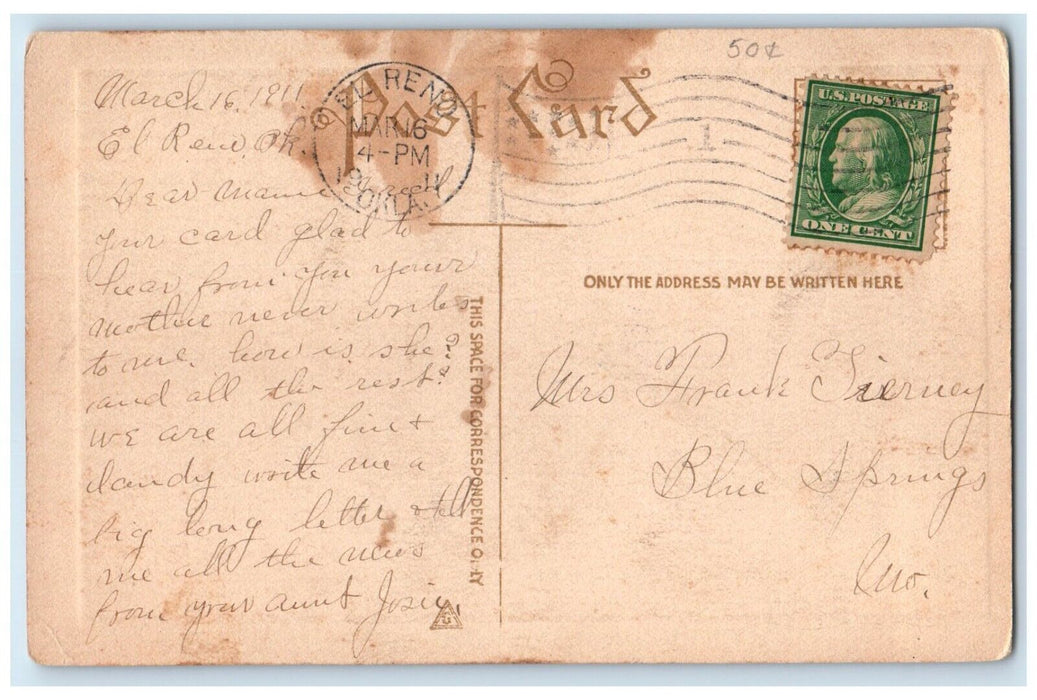 50¢
Post Card
EL RENO
MAR 16
4-PM
1911
OKLA.
1
U.S. POSTAGE
ONE CENT
March 16, 1911
El Reno, Ok.
Dear Mamie
your card glad to
hear from you your
mother never writes
to me. how is she
and all the rest??
we are all fine +
dandy write me a
big long letter + tell
me all the news
from your aunt Josie,
THIS SPACE FOR CORRESPONDENCE ONLY
ONLY THE ADDRESS MAY BE WRITTEN HERE
Mrs Frank Tierney
Blue Springs
Mo.